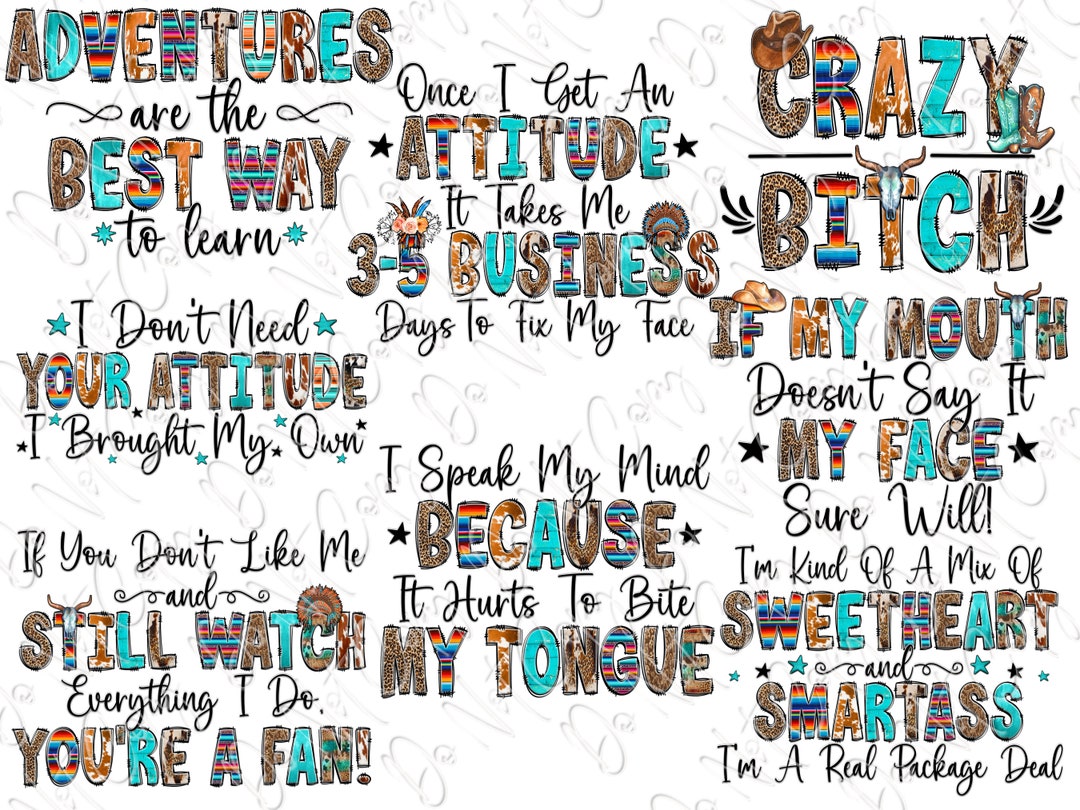 ADVENTURES
are the
BEST WAY
to learn
Once I Get An
ATTITUDE
It Takes Me
3-5 BUSINESS
Days To Fix My Face
CRAZY
BITCH
I Don't Need
YOUR ATTITUDE
I Brought My Own
IF MY MOUTH
Doesn't Say It
MY FACE
Sure Will!
I Speak My Mind
BECAUSE
It Hurts To Bite
MY TONGUE
If You Don't Like Me
and
STILL WATCH
Everything I Do.
YOU'RE A FAN!
I'm Kind Of A Mix Of
SWEETHEART
and
SMARTASS
I'm A Real Package Deal